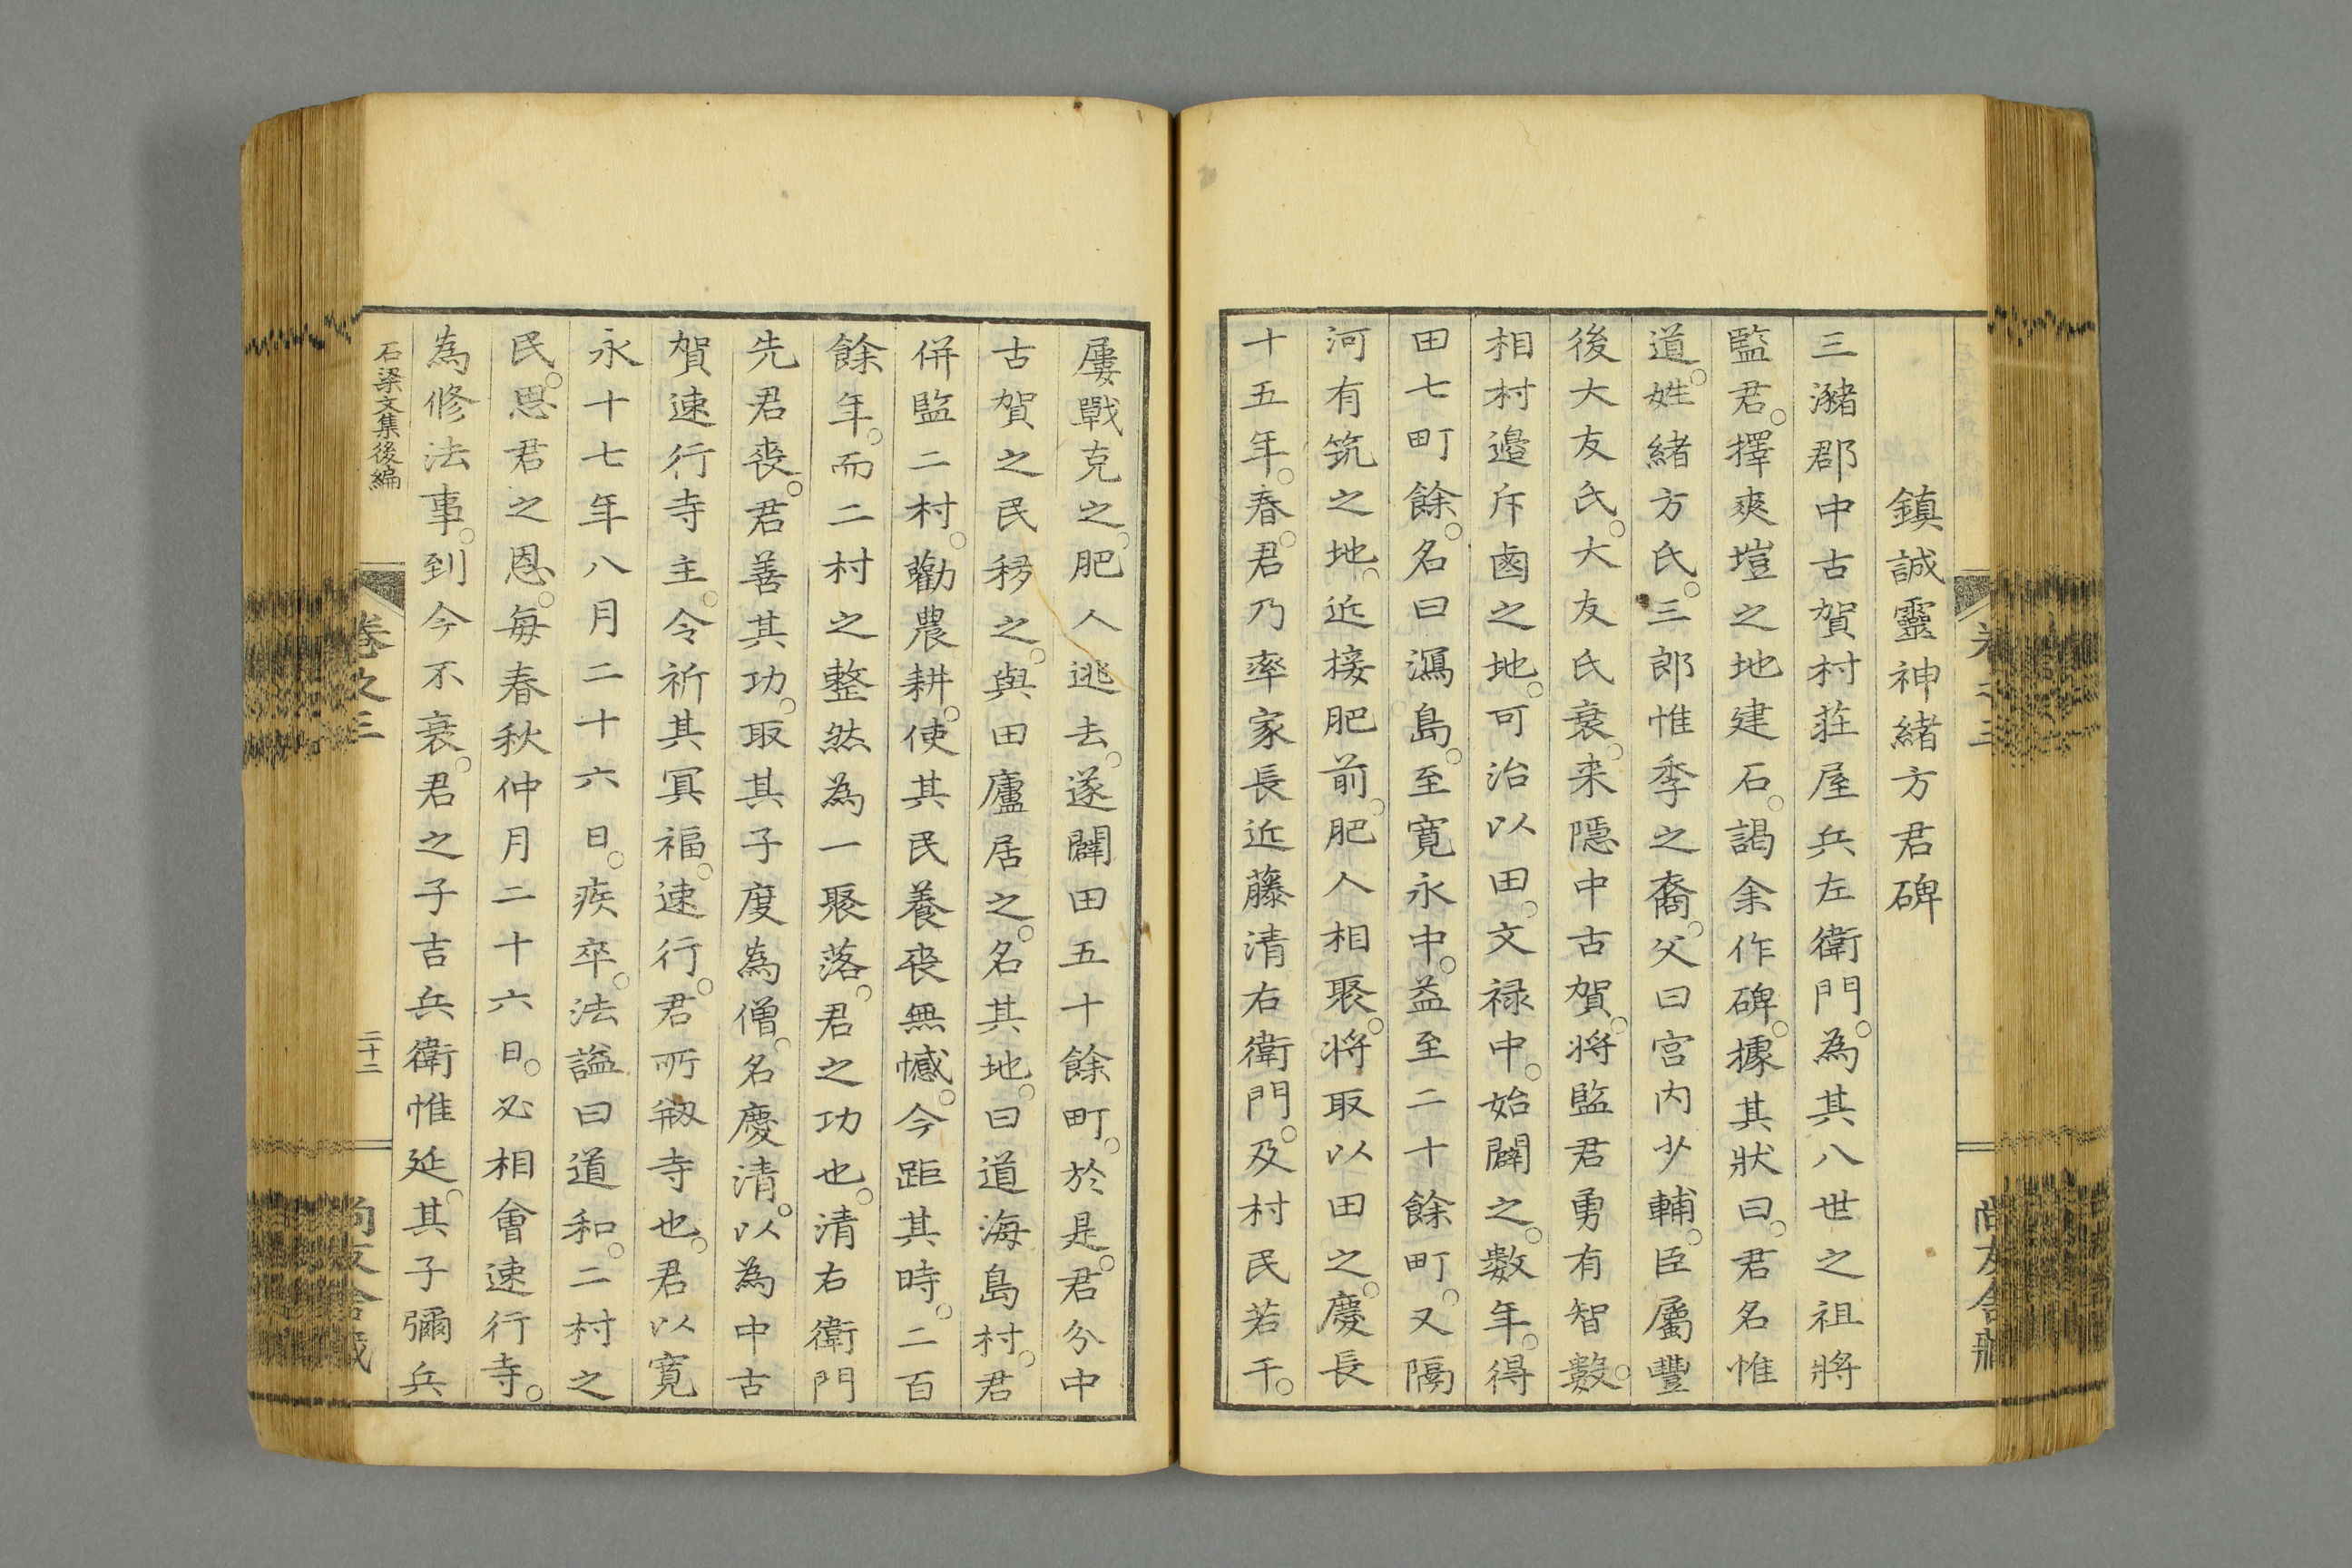 鎮誠靈神緒方君碑
三瀦郡中古賀村莊屋兵左衛門。為其八世之祖將
監君。擇爽塏之地建石。謁余作碑。據其狀曰。君名惟
道。姓緒方氏。三郎惟季之裔。父曰宮内少輔。臣屬豐
後大友氏。大友氏衰。来隱中古賀。将監君勇有智數。
相村邉斥鹵之地。可治以田。文禄中。始闢之。數年。得
田七町餘。名曰潟島。至寛永中。益至二十餘町。又隔
河有筑之地。近接肥前。肥人相聚。将取以田之。慶長
十五年。春。君乃率家長近藤清右衛門。及村民若干。
屢戰克之。肥人逃去。遂闢田五十餘町。於是。君分中
古賀之民移之。與田廬居之。名其地。曰道海島村。君
併監二村。勸農耕。使其民養喪無憾。今距其時。二百
餘年。而二村之整然為一聚落。君之功也。清右衛門
先君喪。君善其功。取其子度為僧。名慶清。以為中古
賀速行寺主。令祈其冥福。速行。君所剏寺也。君以寛
永十七年八月二十六日。疾卒。法謚曰道和。二村之
民。思君之恩。毎春秋仲月二十六日。必相會速行寺。
為修法事。到今不衰。君之子吉兵衛惟延。其子彌兵
石梁文集後編
卷之三
二十二
尚友舎藏